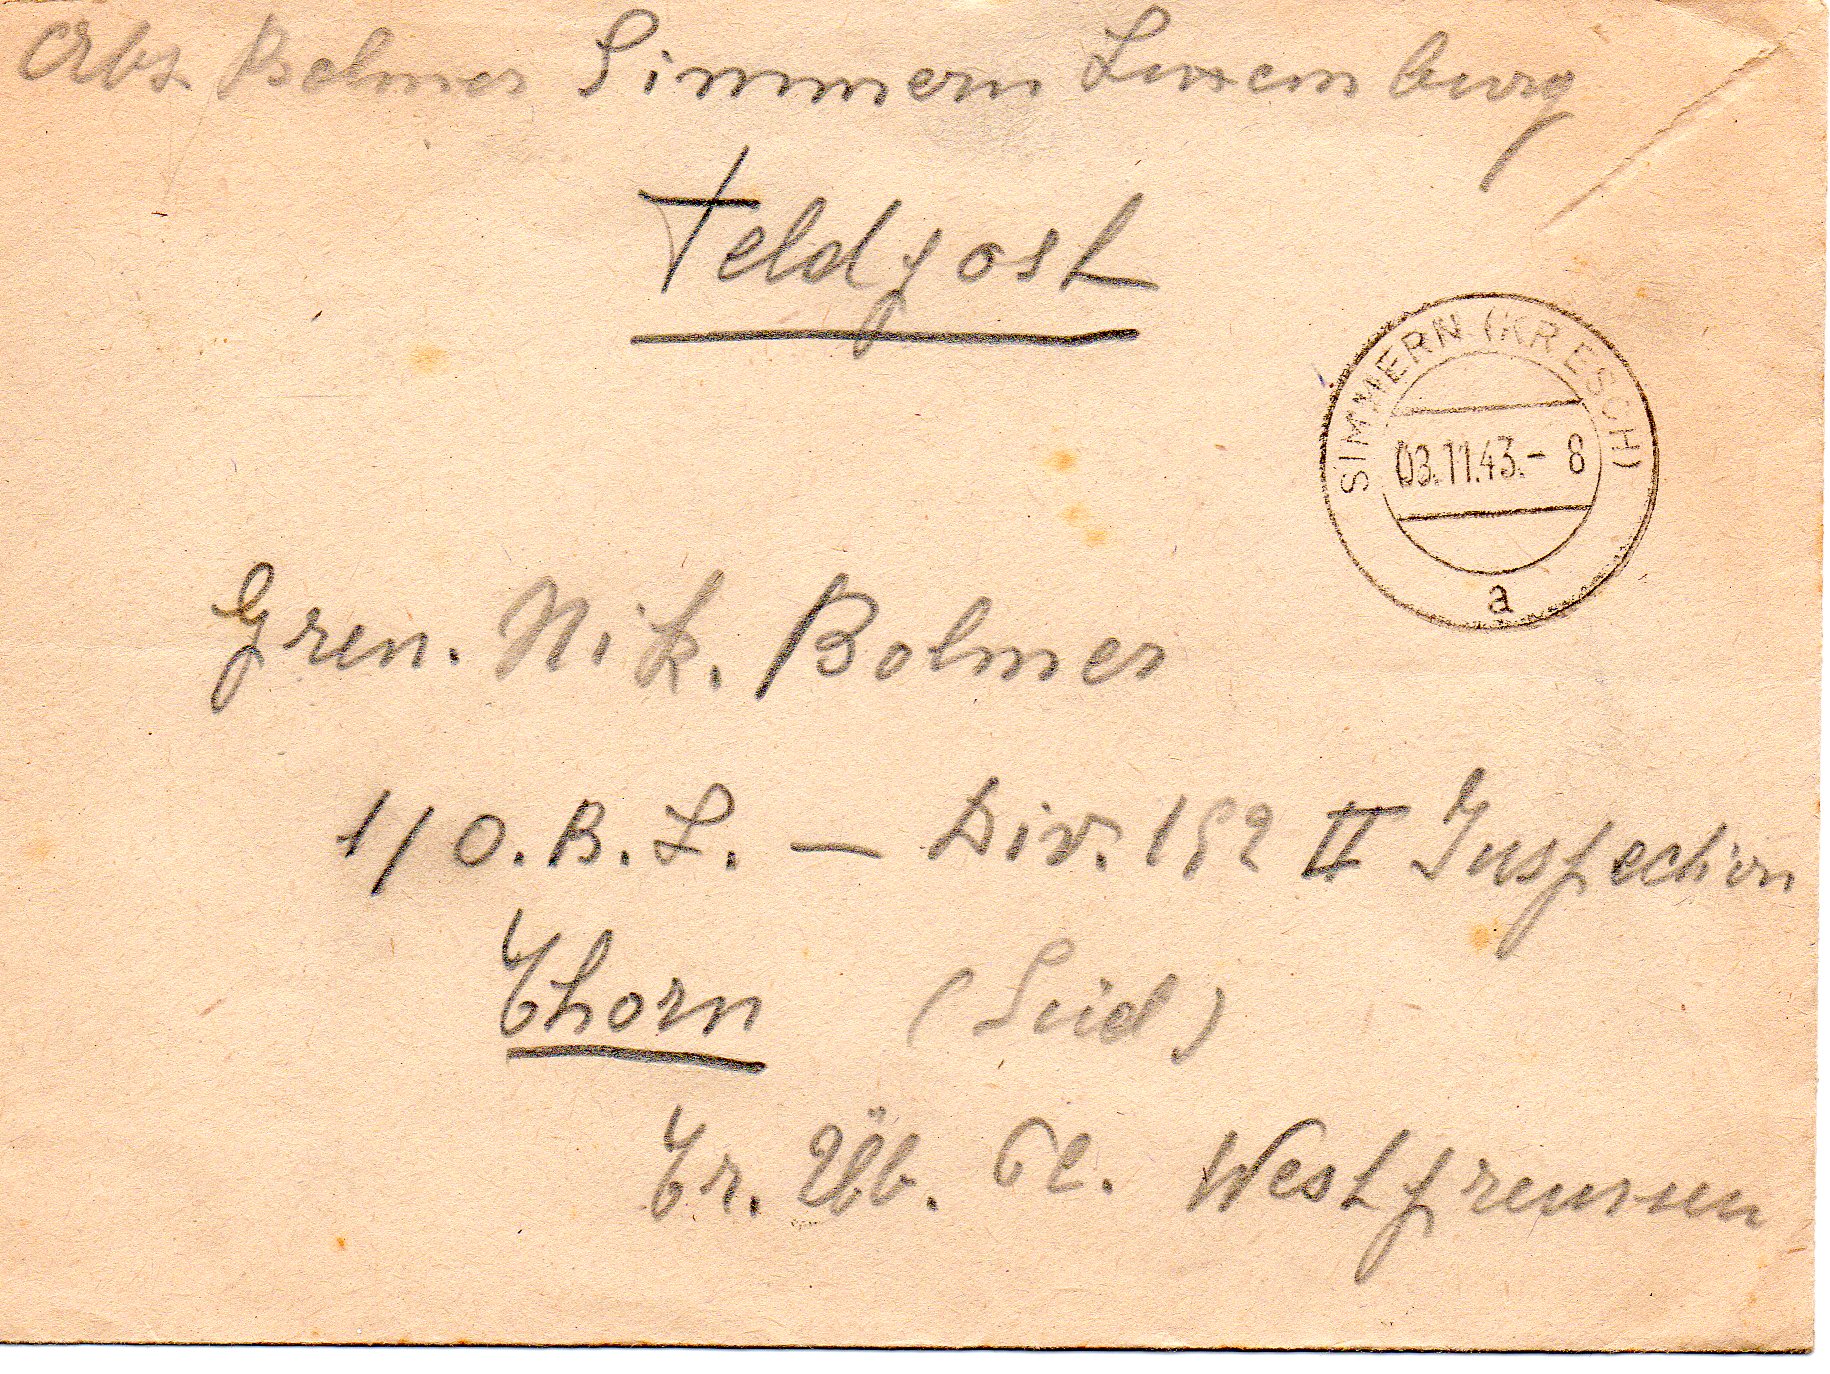 Abs. Bolmer Simmern Luxemburg
Feldpost
SIMMERN (KR ESCH)
03.11.43.- 8
a
Gren. Nik. Bolmer
1/O.B.L. — Div. 152 II Inspection
Thorn (Süd)
Tr. Üb. Pl. Westpreussen